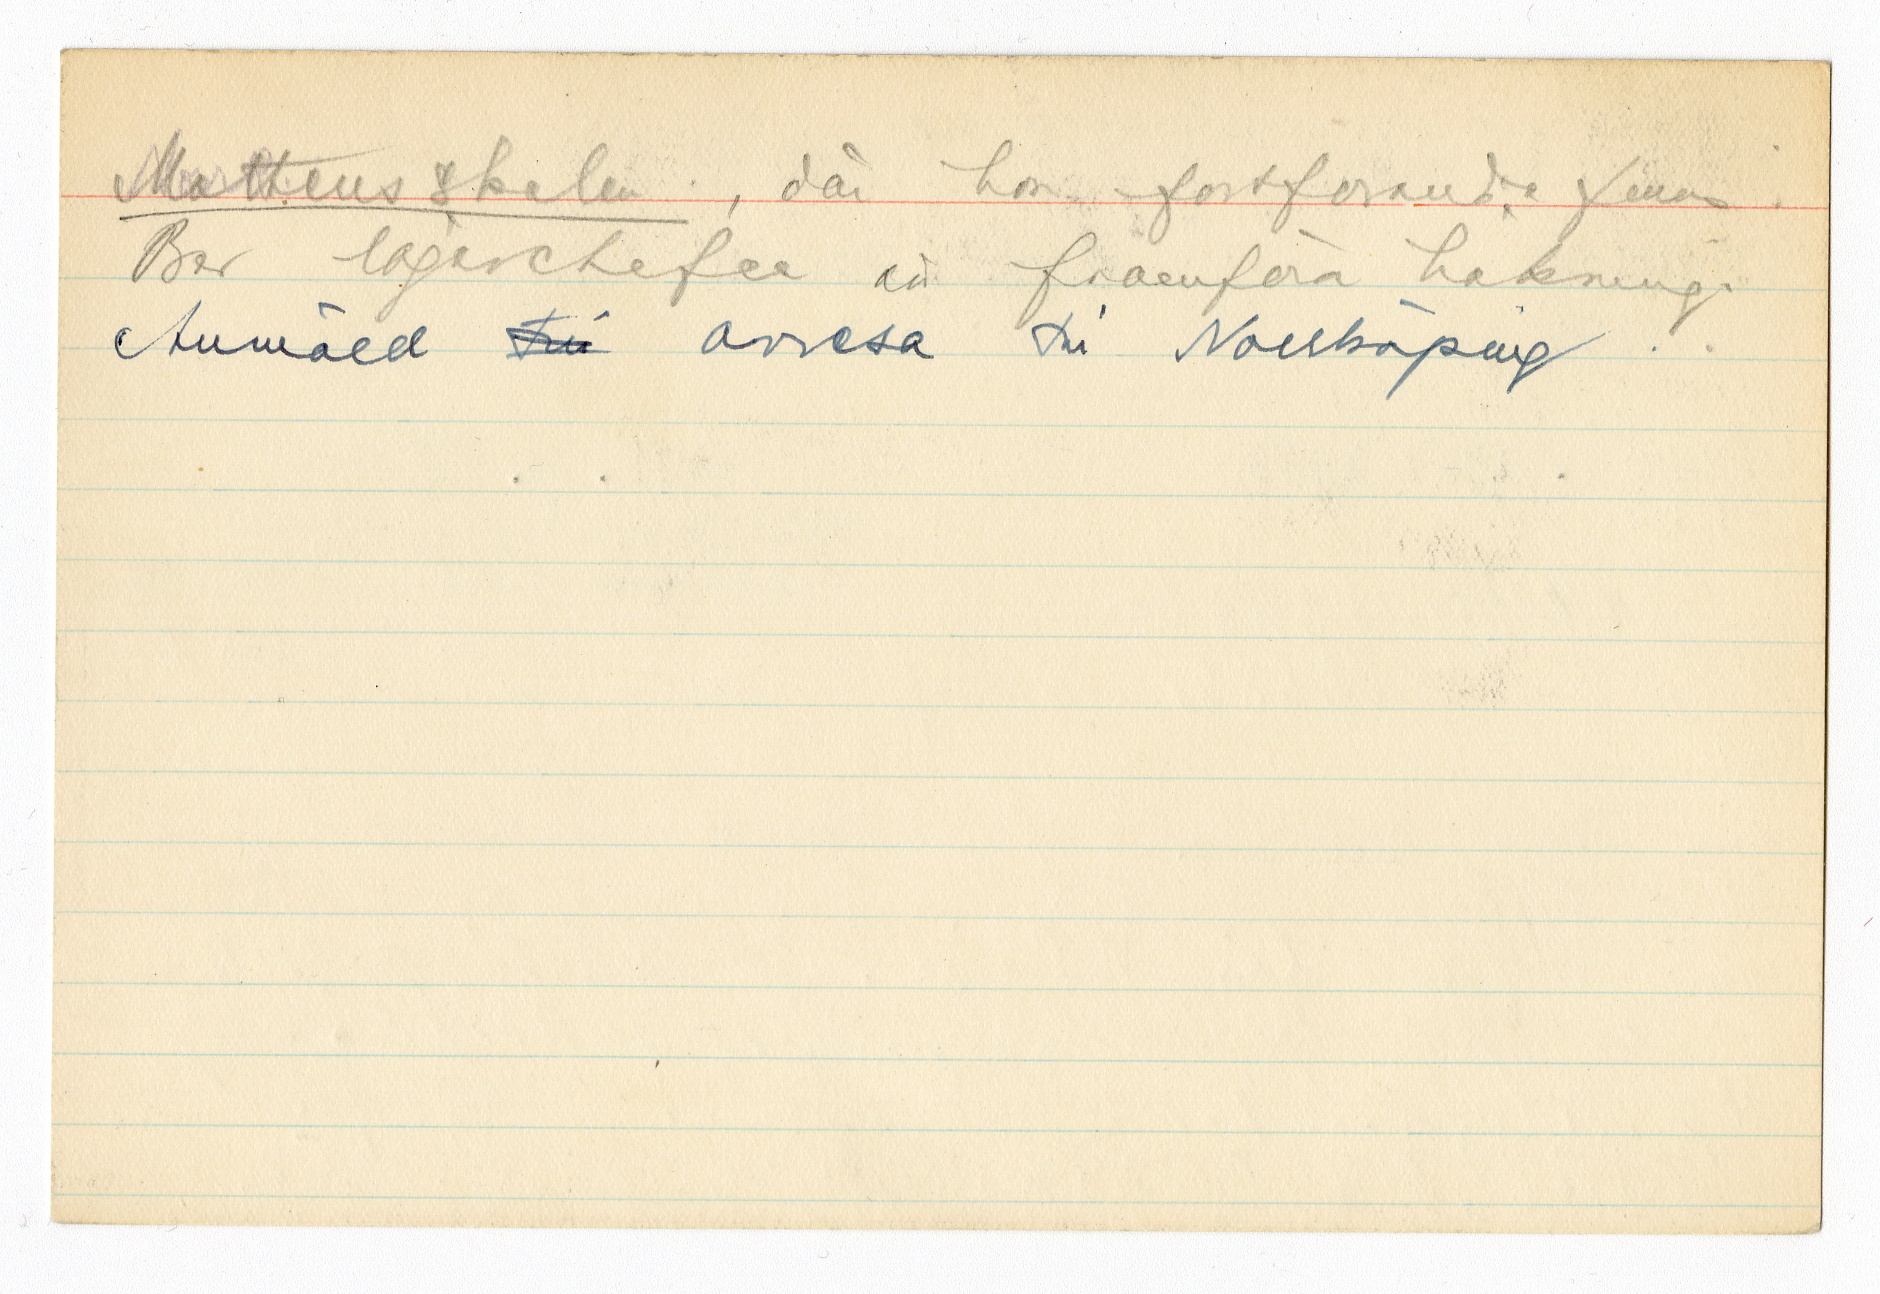 Matteusskolan, där hon fortfarande finns.
Ber lägerchefen att framföra hälsning.
Anmäld till avresa till Norrköping.